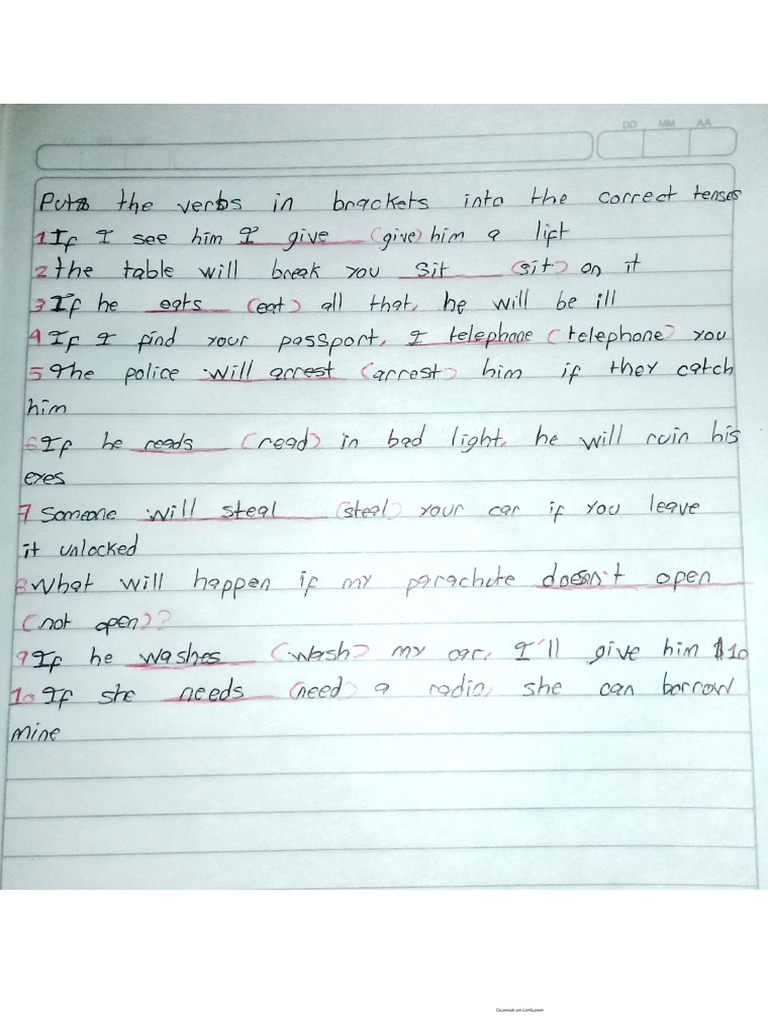 DD MM AA
Puts the verbs in brackets into the correct tenses
1 If I see him I give (give) him a lift
2 the table will break you sit (sit) on it
3 If he eats (eat) all that, he will be ill
4 If I find your passport, I telephone (telephone) you
5 The police will arrest (arrest) him if they catch
him
6 If he reads (read) in bad light, he will ruin his
eyes
7 Someone will steal (steal) your car if you leave
it unlocked
8 What will happen if my parachute doesn't open
(not open)?
9 If he washes (wash) my car, I'll give him $10
10 If she needs (need) a radio, she can borrow
mine
Escaneado con CamScanner